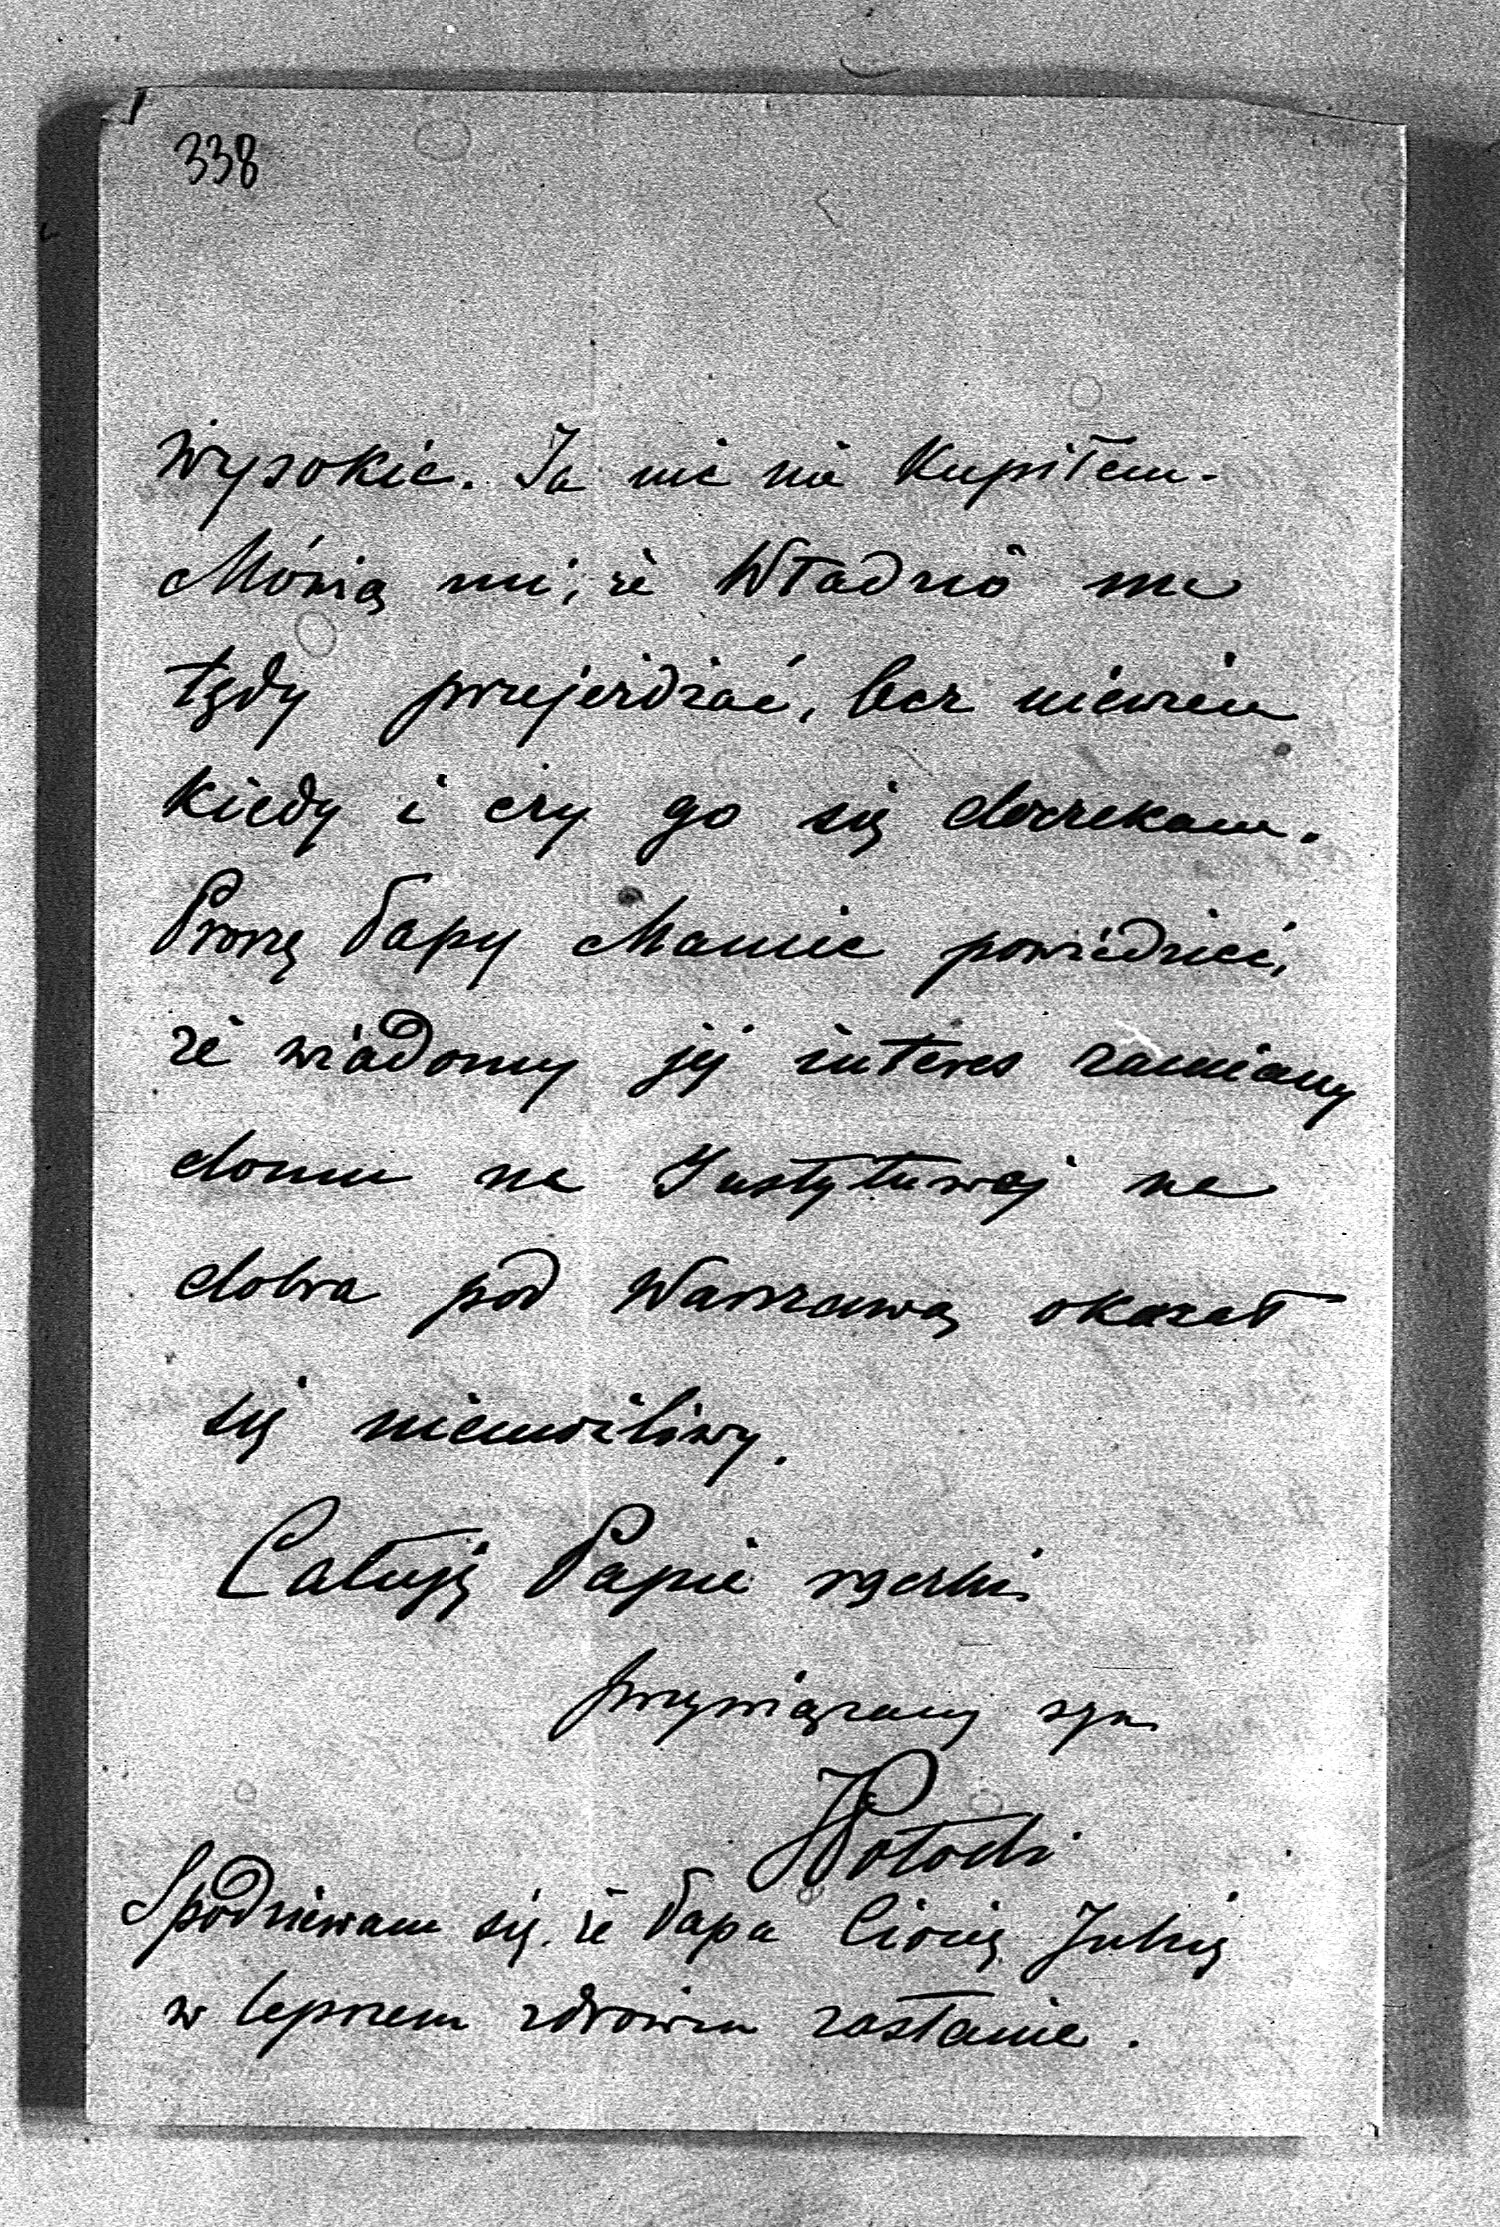 338
wysokie. Ja nic nie kupiłem.
Mówią mi, że Władzio ma
tędy przejeżdżać, lecz niewiem
kiedy i czy go się doczekam.
Proszę Papy Mamie powiedzieć,
że wiadomy jej interes zamiany
domu na Instytutowej na
dobra pod Warszawą okazał
się niemożliwy.
Całuję Papie rączki
przywiązany syn
Potocki
Spodziewam się, że Papa Ciocię Julię
w lepszem zdrowiu zastanie.